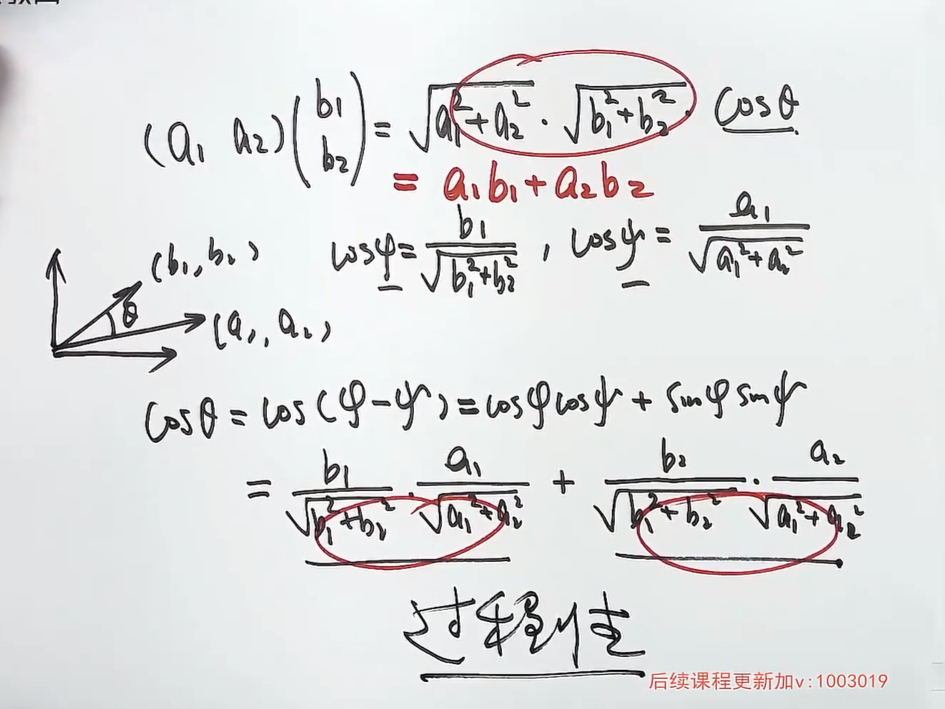 (a₁ a₂)(b₁ b₂) = √(a₁²+a₂²) · √(b₁²+b₂²) · cosθ
= a₁b₁+a₂b₂
cosφ = b₁/√(b₁²+b₂²) , cosψ = a₁/√(a₁²+a₂²)
(b₁, b₂)
θ
(a₁, a₂)
cosθ = cos(φ-ψ) = cosφcosψ + sinφ sinψ
= b₁/√(b₁²+b₂²) · a₁/√(a₁²+a₂²) + b₂/√(b₁²+b₂²) · a₂/√(a₁²+a₂²)
后续课程更新加v:1003019